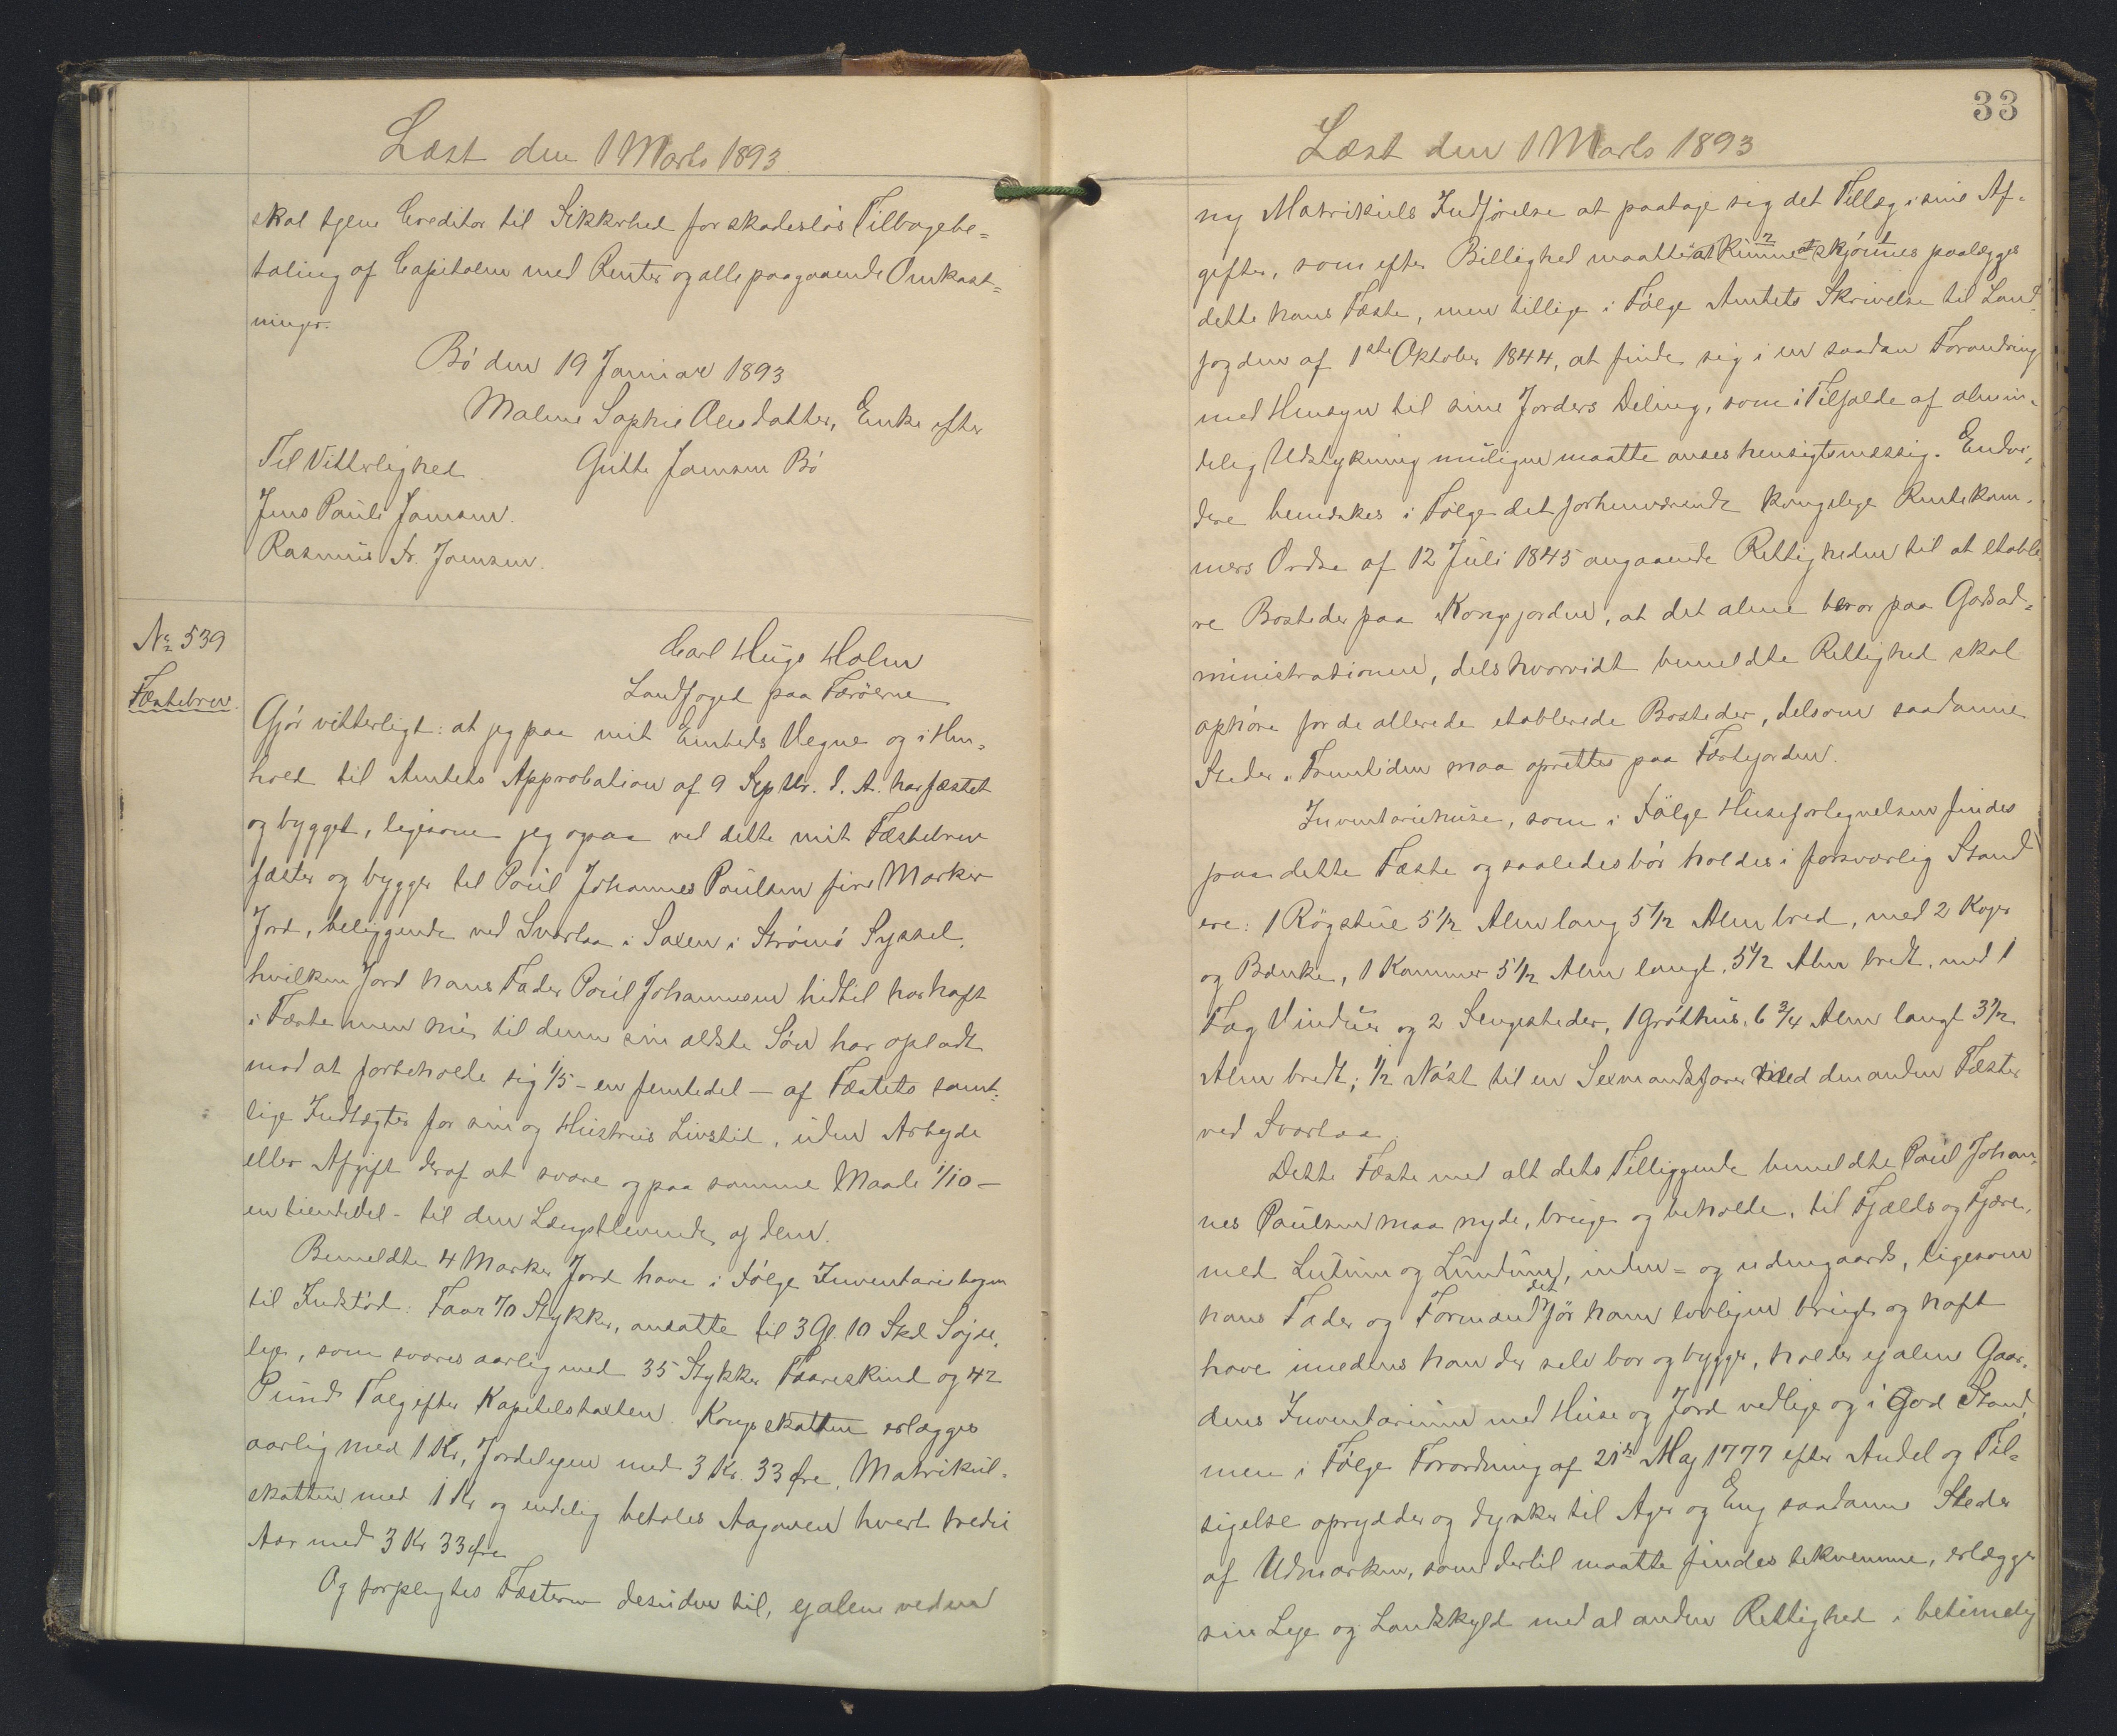 Læst den 1 Marts 1893
skal tjene Creditor til Sikkrhed for skadeslös Tilbagebe=
taling af Capitalen med Renter og alle paagaaende Omkost=
ninger.
Bö den 19 Januar 1893
Malene Sophie Olesdatter, Enke efter
Til Vitterlighed. Gutte Joensen Bö
Jens Pauli Joensen.
Rasmus Fr. Joensen.
No 539
Fæstebrev.
Carl Hugo Holm
Landfoged paa Færöerne
Gjör vitterligt: at jeg paa mit Embeds Vegne og i Hen=
hold til Amtets Approbation af 9 Septbr. d. A. har fæstet
og bygget, ligesom jeg ogsaa ved dette mit Fæstebrev
fæster og bygger til Poul Johannes Poulsen fire Marker
Jord, beliggende ved Svartaa i Saxen i Strömö Syssel,
hvilken Jord hans Fader Poul Johannesen hidtil har haft
i Fæste men nu til denne sin ældste Sön har opladt
mod at forbeholde sig 1/5 - en femtedel - af Fæstets samt=
lige Indtægter for sin og Hustrus Livstid, uden Arbejde
eller Afgift deraf at svare og paa samme Maade 1/10 -
en tiendedel - til den Længstlevende af dem.
Bemeldte 4 Marker Jord have i Fölge Inventariebogen
til Indstöd: Faar 70 Stykker, ansatte til 3 Gl. 10 Skd Söjde=
leje, som svares aarlig med 35 Stykker Faareskind og 42
Pund Talg efter Kapitelstaxten. Kongsskatten erlægges
aarlig med 1 Kr, Jordelejen med 3 Kr. 33 Öre, Matrikul=
skatten med 1 Kr og endelig betales Aagoven hvert tredie
Aar med 3 Kr 33 Öre
Og forpligtes Fæsteren desuden til, ej alene ved en
33
Læst den 1 Marts 1893
ny Matrikuls Indförelse at paatage sig det Tillæg i sine Af=
gifter, som efter Billighed maatte at kunne skjönnes paalægges
dette hans Fæste, men tillige i Fölge Amtets Skrivelse til Land=
fogden af 1ste Oktober 1844, at finde sig i en saadan Forandring
med Hensyn til sine Jorders Deling, som i Tilfælde af almin=
delig Udstykning muligen maatte anses hensigtsmæssig. Endvi=
dere bemærkes i Fölge det forhenværende kongelige Rentekam=
mers Ordre af 12 Juli 1845 angaaende Rettigheden til at etable
re Bosteder paa Kongsjorden, at det alene beror paa Godsad=
ministrationen, dels hvorvidt bemeldte Rettighed skal
ophöre for de allerede etablerede Bosteder, dels om saadanne
Steder i Fremtiden maa oprettes paa Fæstejorden.
Inventariehuse, som i Fölge Husefortegnelsen findes
paa dette Fæste og saaledes bör holdes i forsvarlig Stand
ere: 1 Rögstue 5 1/2 Alen lang 5 1/2 Alen bred, med 2 Kojer
og Bænke, 1 Kammer 5 1/2 Alen langt, 5 1/2 Alen bredt, med 1
Fag Vindue og 2 Sengesteder, 1 Gröthus, 6 3/4 Alen langt 3 1/2
Alen bredt; 1/2 Nöst til en Sexmandsfarer med den anden Fæster
ved Svartaa.
Dette Fæste med alt dets Tilliggende bemeldte Poul Johan=
nes Poulsen maa nyde, bruge og beholde, til Fjælds og Fjære,
med Lutum og Lundum, inden= og udengaards, ligesom
hans Fader og Formænd det för ham lovligen brugt og haft
have imedens han der selv bor og bygger, holder ej alene Gaar=
dens Inventarium med Huse og Jord vedlige og i God Stand,
men i Fölge Forordning af 21de Maj 1777 efter Andel og Til=
sigelse oprydder og dyrker til Ager og Eng saadanne Steder
af Udmarken, som dertil maatte findes bekvemme, erlægger
sin Leje og Landskyld med al anden Rettighed i betimelig